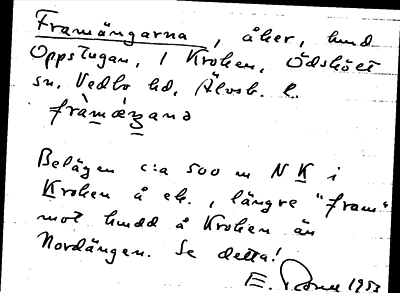 Framängarna, åker, hmd
Oppstugan, 1 Kroken, Ödskölt
sn. Vedbo hd. Älvsb. l.
fràmæŋana
Belägen c:a 500 m N K i
Kroken å ek., längre "fram"
mot hmdd å Kroken än
Nordängen. Se detta!
E. 1953